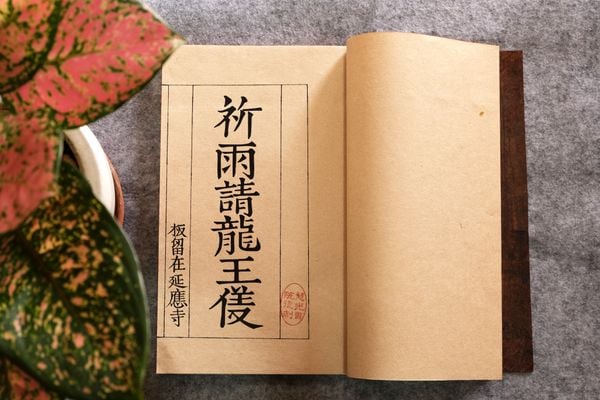 祈雨請龍王儀
板留在延應寺